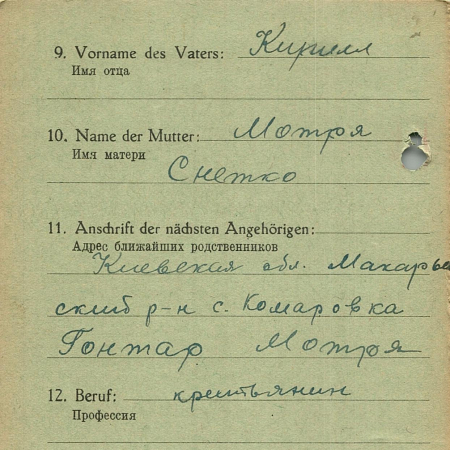 9. Vorname des Vaters: Кирилл
Имя отца
10. Name der Mutter: Мотря
Имя матери
Снетко
11. Anschrift der nächsten Angehörigen:
Адрес ближайших родственников
Киевская обл. Макарьев
ский р-н с. Комаровка
Гонтар Мотря
12. Beruf: крестьянин
Профессия